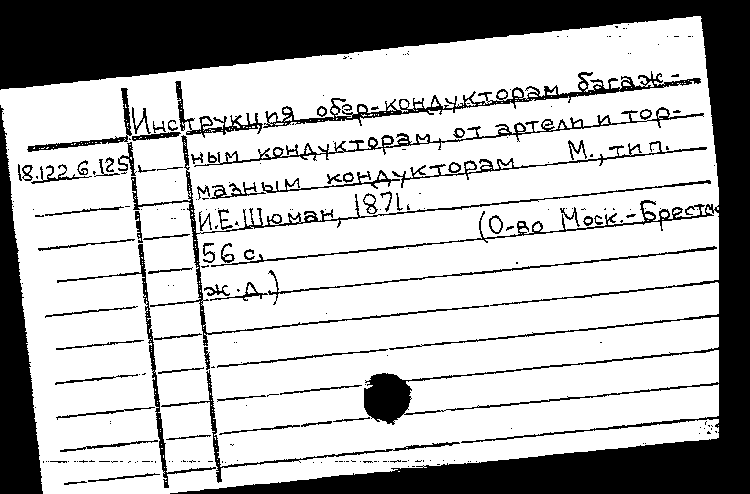 Инструкция обер-кондукторам, багаж-
18.122.6.125. ным кондукторам, от артели и тор-
мазным кондукторам М., тип.
И.Е.Шюман, 1871.
56 с. (О-во Моск.-Брестск
ж.д.)